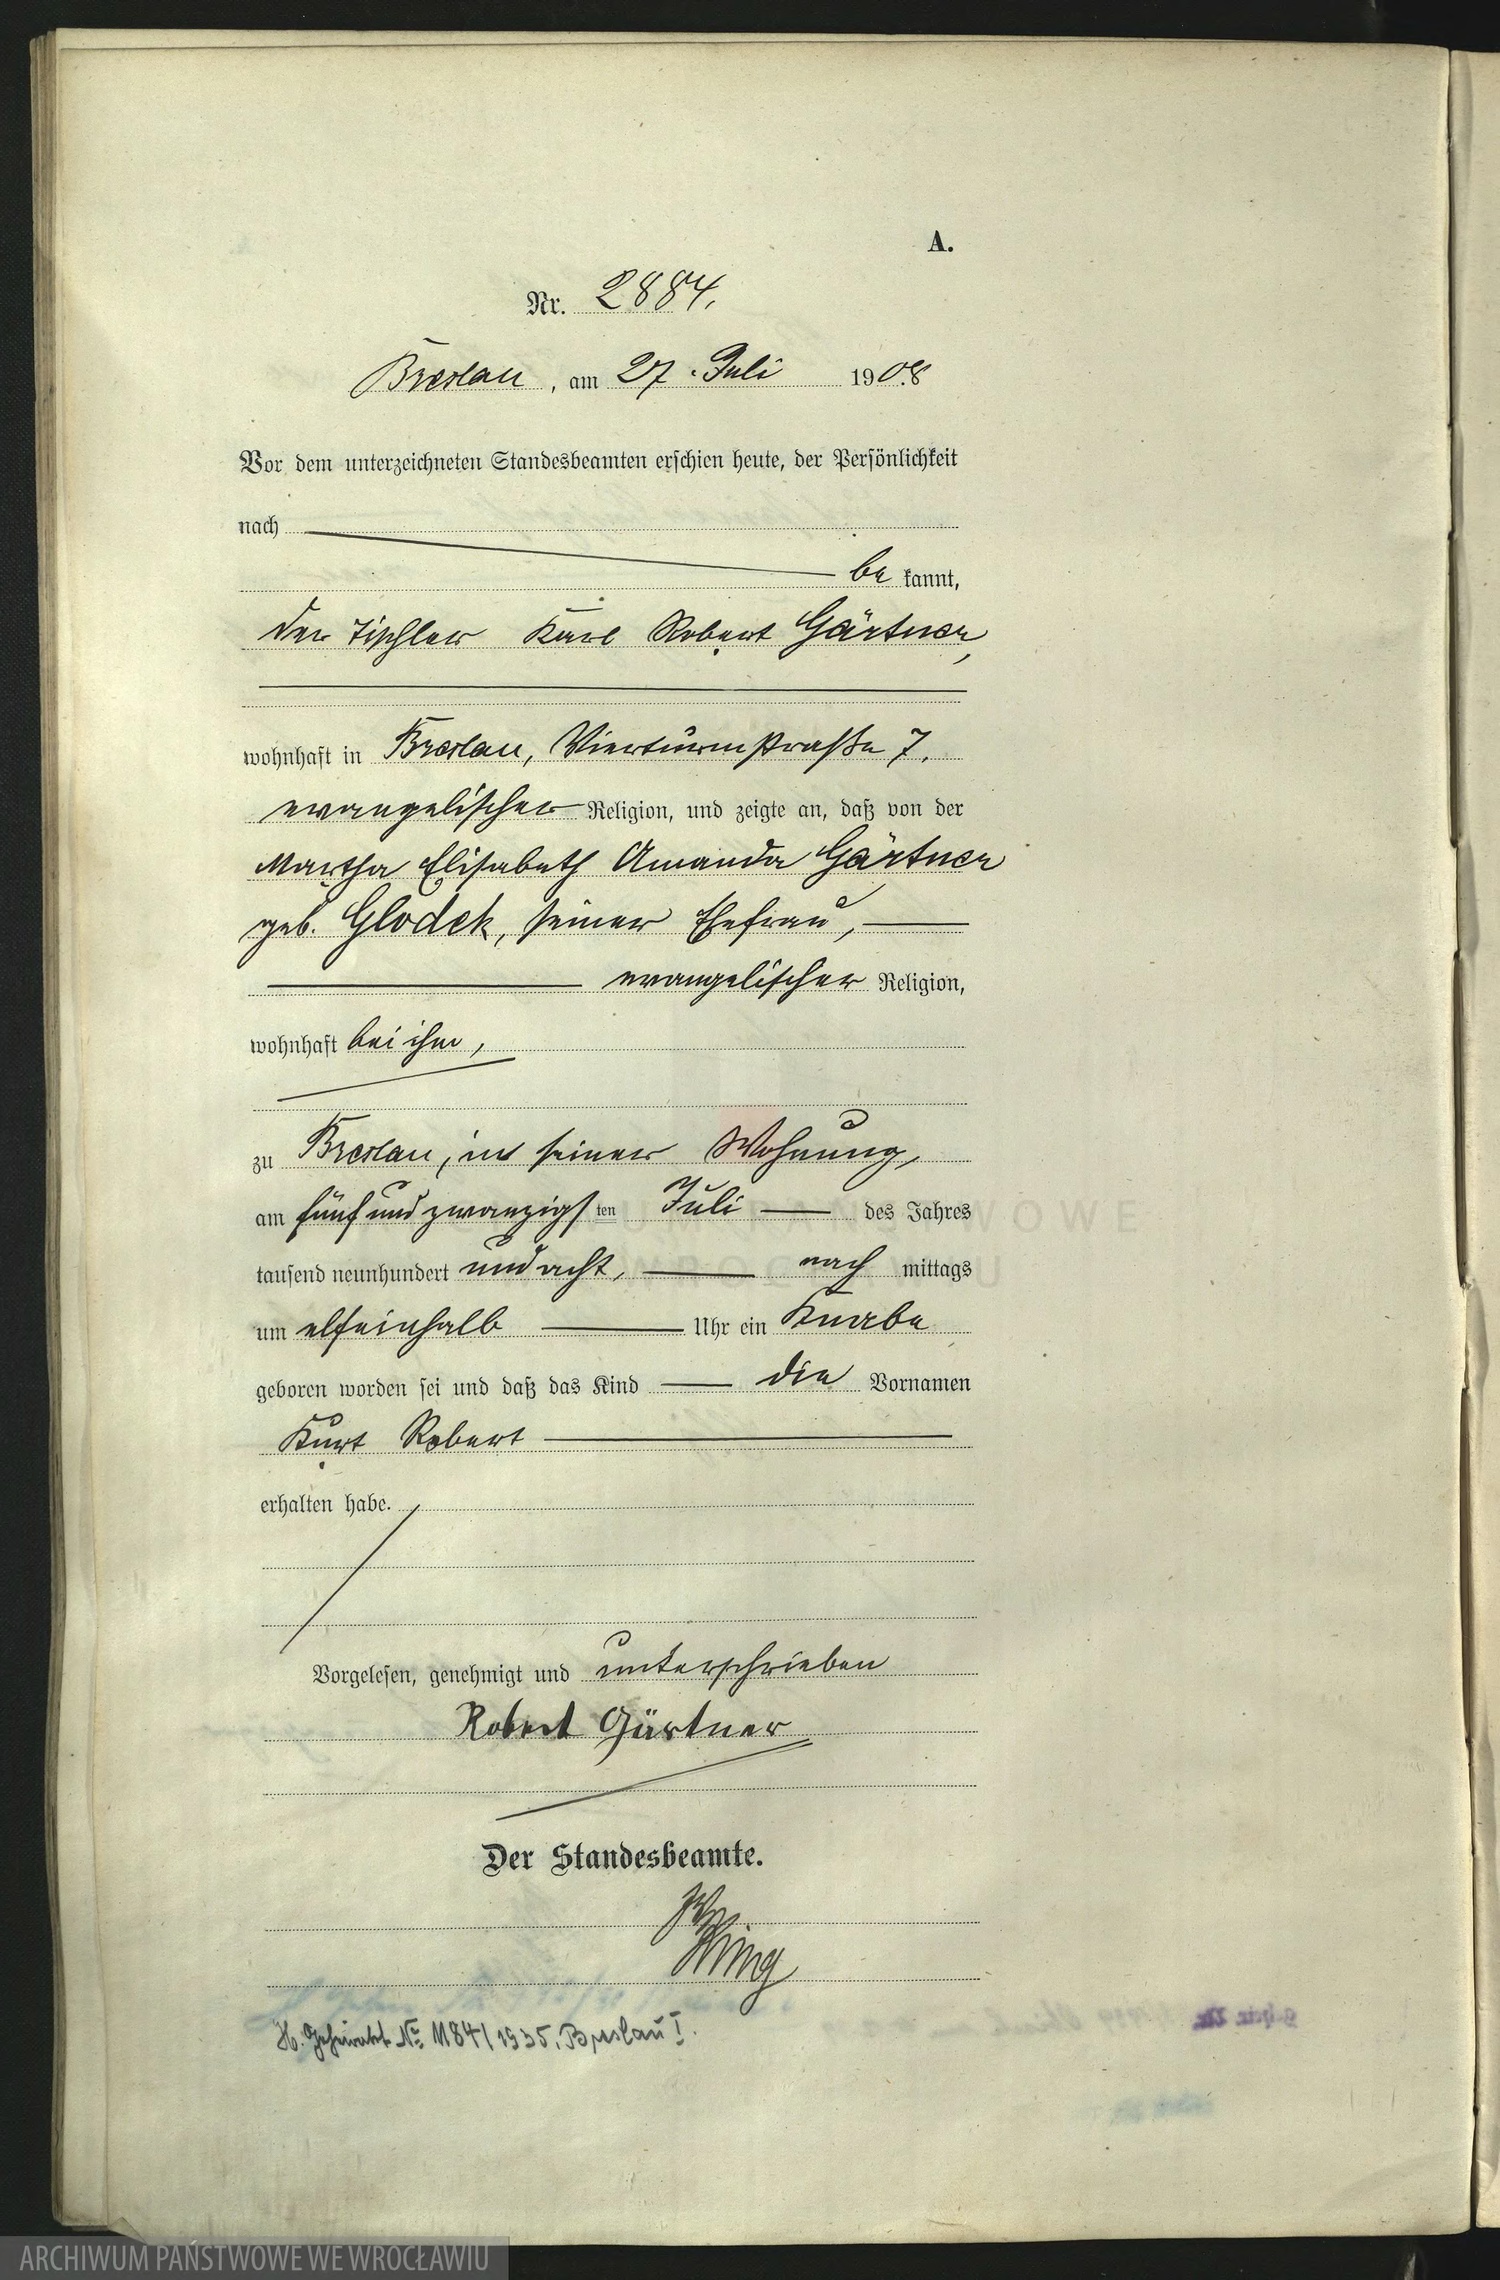 A.
Nr. 2884.
Breslau, am 27. Juli 1908
Vor dem unterzeichneten Standesbeamten erschien heute, der Persönlichkeit
nach
be kannt,
der Tischler Karl Robert Gärtner,
wohnhaft in Breslau, Vierturmstraße 7.
evangelischer Religion, und zeigte an, daß von der
Martha Elisabeth Amanda Gärtner
geb. Glodek, seiner Ehefrau,
evangelischer Religion,
wohnhaft bei ihm,
zu Breslau, in seiner Wohnung,
am fünfundzwanzigsten Juli des Jahres
tausend neunhundert und acht, nach mittags
um elfeinhalb Uhr ein Knabe
geboren worden sei und daß das Kind die Vornamen
Kurt Robert
erhalten habe.
Vorgelesen, genehmigt und unterschrieben
Robert Gärtner
Der Standesbeamte.
№ 1184/1935, Breslau I.
ARCHIWUM PAŃSTWOWE WE WROCŁAWIU